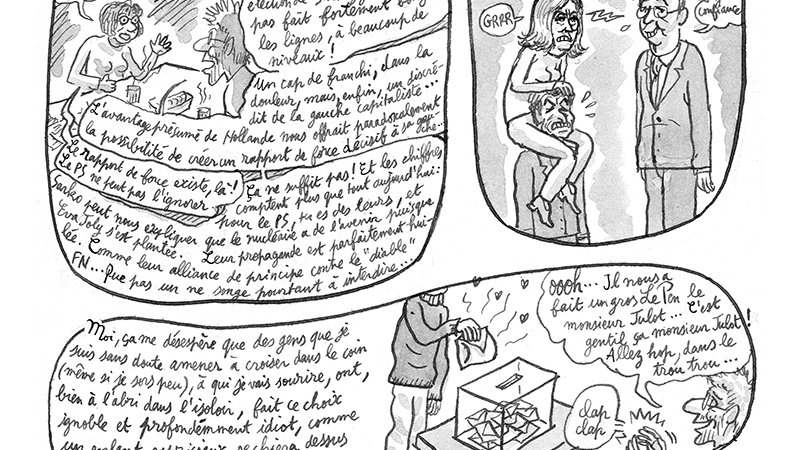 élection de
pas fait fortement boug
les lignes, à beaucoup de
niveaux!
Un cap de franchi, dans la
douleur, mais, enfin, un discré-
dit de la gauche capitaliste...
L'avantage présumé de Hollande nous offrait paradoxalement
la possibilité de créer un rapport de force décisif à sa gau
che...
Le rapport de force existe, là!
Le PS ne peut pas l'ignorer
Ça ne suffit pas! Et les chiffres
comptent plus que tout aujourd'hui:
pour le PS, tu es des leurs, et
Sarko peut nous expliquer que le nucléaire a de l'avenir puisque
Eva Joly s'est plantée. Leur propagande est parfaitement hui-
lée. Comme leur alliance de principe contre le "diable"
FN... Que pas un ne songe pourtant à interdire...
GRRR
Confiance
Moi, ça me désespère que des gens que je
suis sans doute amener à croiser dans le coin
(même si je sors peu), à qui je vais sourire, ont,
bien à l'abri dans l'isoloir, fait ce choix
ignoble et profondément idiot, comme
un enfant capricieux chiera dessus
oooh... Il nous a
fait un gros Le Pen le
monsieur Julot... C'est
gentil ça monsieur Julot!
Allez hop, dans le
trou trou...
clap
clap